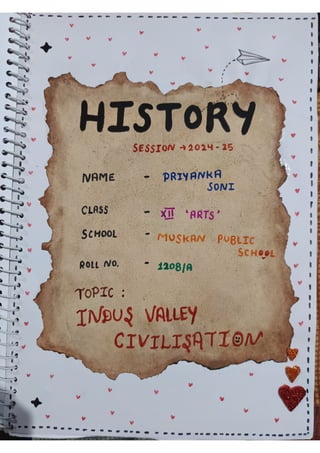 HISTORY
SESSION → 2024-25
NAME - PRIYANKA SONI
CLASS - XII 'ARTS'
SCHOOL - MUSKAN PUBLIC SCHOOL
ROLL NO. - 1208/A
TOPIC :
INDUS VALLEY
CIVILISATION